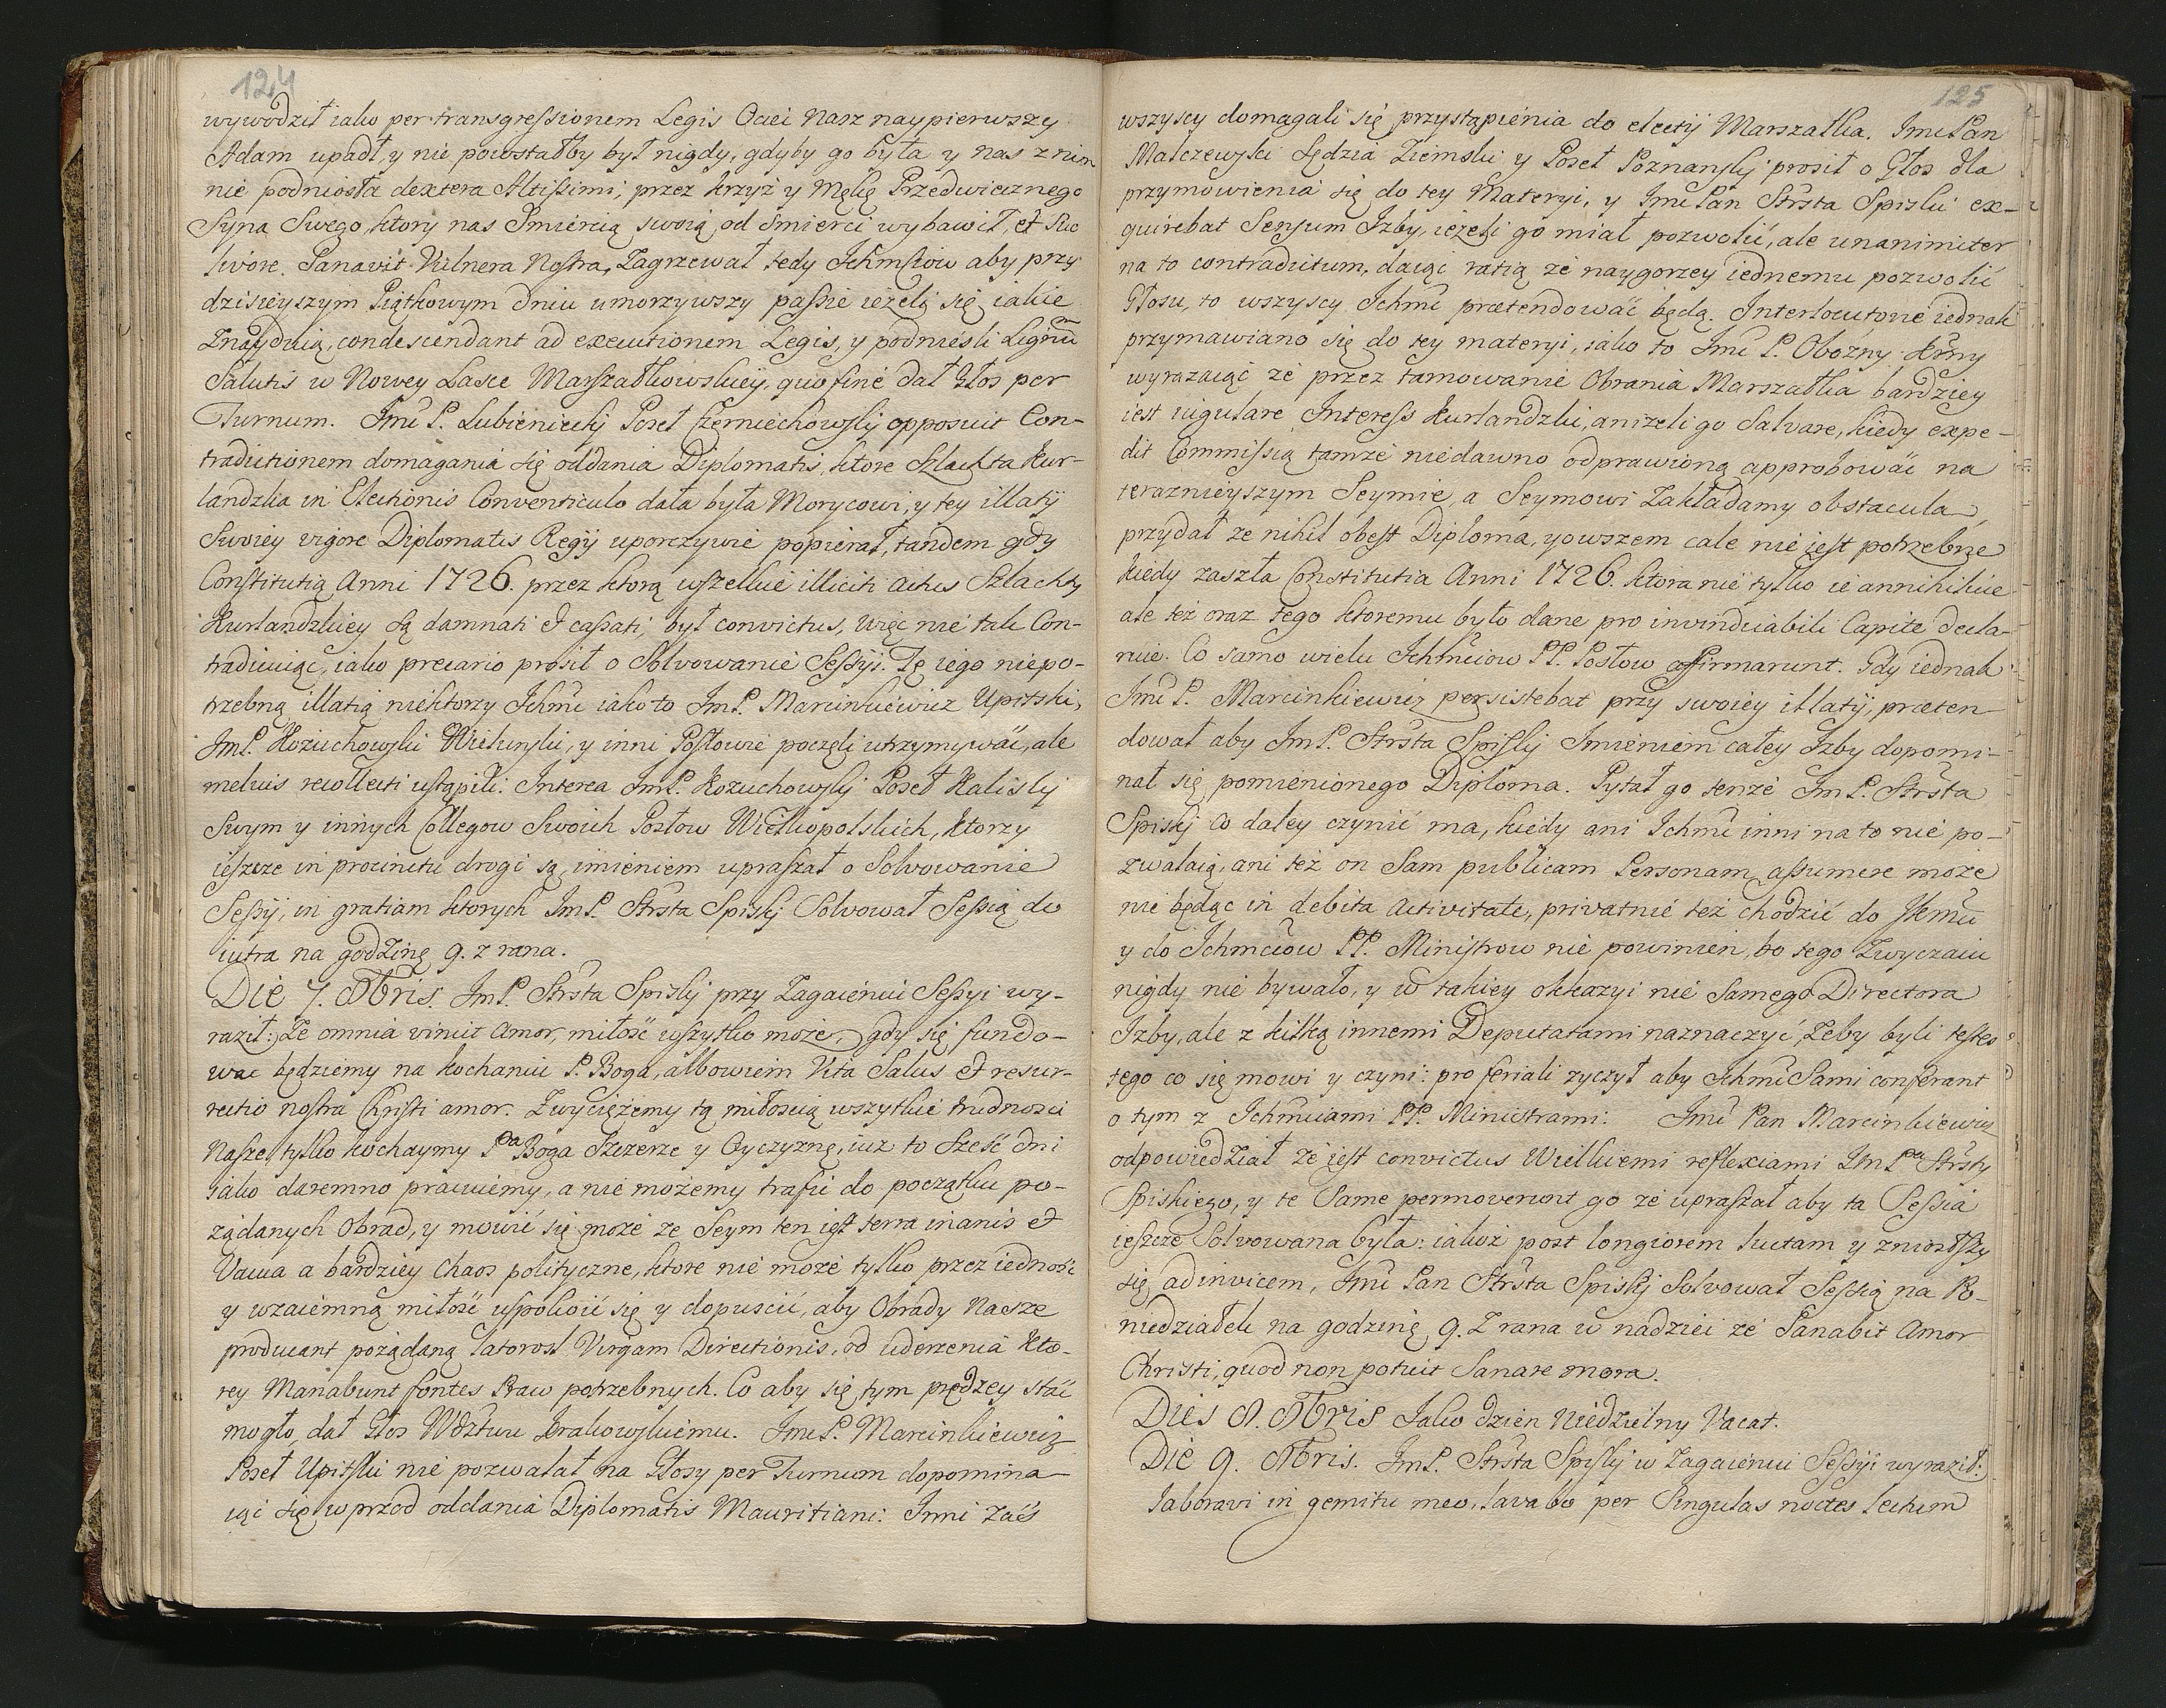 124
wywodził iako per transgressionem Legis Ociec Nasz naypierwszy
Adam upadł, y nie powstałby był nigdy, gdyby go była y nas z nim
nie podniosła dextera Altissimi, przez krzyż y Mękę Przedwiecznego
Syna Swego, ktory nas Smiercią swoią od Smierci wybawił, et suo
livore Sanavit Vulnera Nostra, Zagrzewał tedy Ichmciow aby przy
dzisieyszym Piątkowym dniu umorzywszy passie ieżeli się iakie
Znayduią, condescendant ad executionem Legis, y podnieśli Lignũ
Salutis w Nowey Lasce Marszałkowskiey, quo fine dał Głos per
Turnum. Imć P. Lubieniecki Poseł Czerniechowski opposuit Con-
tradictionem domagania się oddania Diplomatis, ktore Szlachta Kur-
landzka in Electionis Conventiculo dała była Morycowi, y tey illatij
Swoiey vigore Diplomatis Regij uporczywie popierał, tandem gdy
Constitutią Anni 1726. przez ktorą wszelkie illiciti actus Szlachty
Kurlandzkiey są damnati et cassati, był convictus, więc nie tak Con-
tradicuiąc, iako precario prosił o Solvowanie Sessyi. Tę iego niepo-
trzebną illatią niektorzy Ichmć iako to ImP. Marcinkiewicz Upitski,
ImP. Kożuchowski Wieluński, y inni Posłowie poczęli utrzymywać, ale
melius recollecti ustąpili: Interea ImP. Kożuchowski Poseł Kaliski
Swym y innych Collegow Swoich Posłow Wielkopolskich, ktorzy
ieszcze in procinctu drogi są, imieniem upraszał o Solvowanie
Sessyi, in gratiam ktorych ImP. Strsta Spiski Solvował Sessią do
iutra na godzinę 9. z rana.
Die 7. 9bris. ImP. Strsta Spiski przy Zagaieniu Sessyi wy-
raził: Ze omnia vincit amor, miłość wszytko może, gdy się fundo-
wać będziemy na kochaniu P. Boga, albowiem Vita Salus et resur-
rectio nostra Christi amor. Zwyciężemy tą miłością wszytkie trudności
Nasze, tylko kochaymy Pa Boga Szczerze y Oyczyznę, iuż to Sześć dni
iako daremno pracuiemy, a nie możemy trafić do początku po-
żądanych Obrad, y mowić się może ze Seym ten iest terra inanis et
Vacua a bardziey chaos polityczne, ktore nie może tylko przez iedność
y wzaiemną miłość uspokoić się y dopuścić, aby Obrady Nasze
producant pożądaną latorosl Virgam Directionis, od uderzenia kto-
rey Manabunt fontes Praw potrzebnych. Co aby się tym prędzey stać
mogło, dał Głos Wdztwu Krakowskiemu. ImćP. Marcinkiewicz
Poseł Upitski nie pozwalał na Głosy per Turnum dopomina-
iąc się wprzod oddania Diplomatis Mauritiani: Inni zaś
125
wszyscy domagali się przystąpienia do electij Marszałka. ImćPan
Malczewski Sędzia Ziemski y Poseł Poznanski prosił o Głos dla
przymowienia się do tey Materyi, y ImćPan Strsta Spiski ex-
quirebat Sensum Izby, ieżeli go miał pozwolić, ale unanimiter
na to contradictum, daiąc ratią że naygorzey iednemu pozwolić
Głosu, to wszyscy Ichmć prætendować będą. Interlocutorie iednak
przymawiano się do tey materyi, iako to Imć P. Obozny Krny
wyrazaiąc że przez tamowanie Obrania Marszałka bardziey
iest iugulare Interess Kurlandzki, aniżeli go Salvare, kiedy expe-
dit Commissią tamże niedawno odprawioną approbować na
terazniejszym Seymie, a Seymowi Zakładamy obstacula,
przydał ze nihil obest Diploma, y owszem cale nie iest potrzebne
kiedy zaszła Constitutia Anni 1726. ktora nie tylko ie annihiluie
ale też oraz tego ktoremu było dane pro invindicabili Capite decla-
ruie. Co samo wielu Ichmciow PP. Posłow affirmarunt. Gdy iednak
Imć P. Marcinkiewicz persistebat przy swoiey illatij, præten-
dował aby ImP. Strsta Spiski Imieniem całey Izby dopomi-
nał się pomienionego Diploma. Pytał go tenże ImP. Strsta
Spiski co daley czynić ma, kiedy ani Ichmć inni na to nie po-
zwalaią, ani też on Sam publicam Personam assumere może
nie będąc in debita activitate, privatnie też chodzić do
y do Ichmciow PP. Ministrow nie powinien, bo tego Zwyczaiu
nigdy nie bywało, y w takiey okkazyi nie Samego Directora
Izby, ale z kilką innemi Deputatami naznaczyć, Zeby byli testes
tego co się mowi y czyni: pro feriali zyczył aby Ichmć Sami conferant
o tym z Ichmciami PP. Ministrami: Imć Pan Marcinkiewicz
odpowiedział że iest convictus Wielkiemi reflexiami ImPa Strsty
Spiskiego, y te Same permoverunt go że upraszał aby ta Sessia
ieszcze Solvowana była: iakoż post longiorem luctam y zniosłszy
się adinvicem, Imć Pan Strsta Spiski Solvował Sessią na Po-
niedziałek na godzinę 9. Z rana w nadziei że Sanabit Amor
Christi, quod non potuit Sanare mora.
Dies 8. 9bris Jako dzien Niedzielny Vacat.
Die 9. 9bris. ImP. Strsta Spiski w Zagaieniu Sessyi wyraził:
laboravi in gemitu meo, lavabo per Singulas noctes lectum